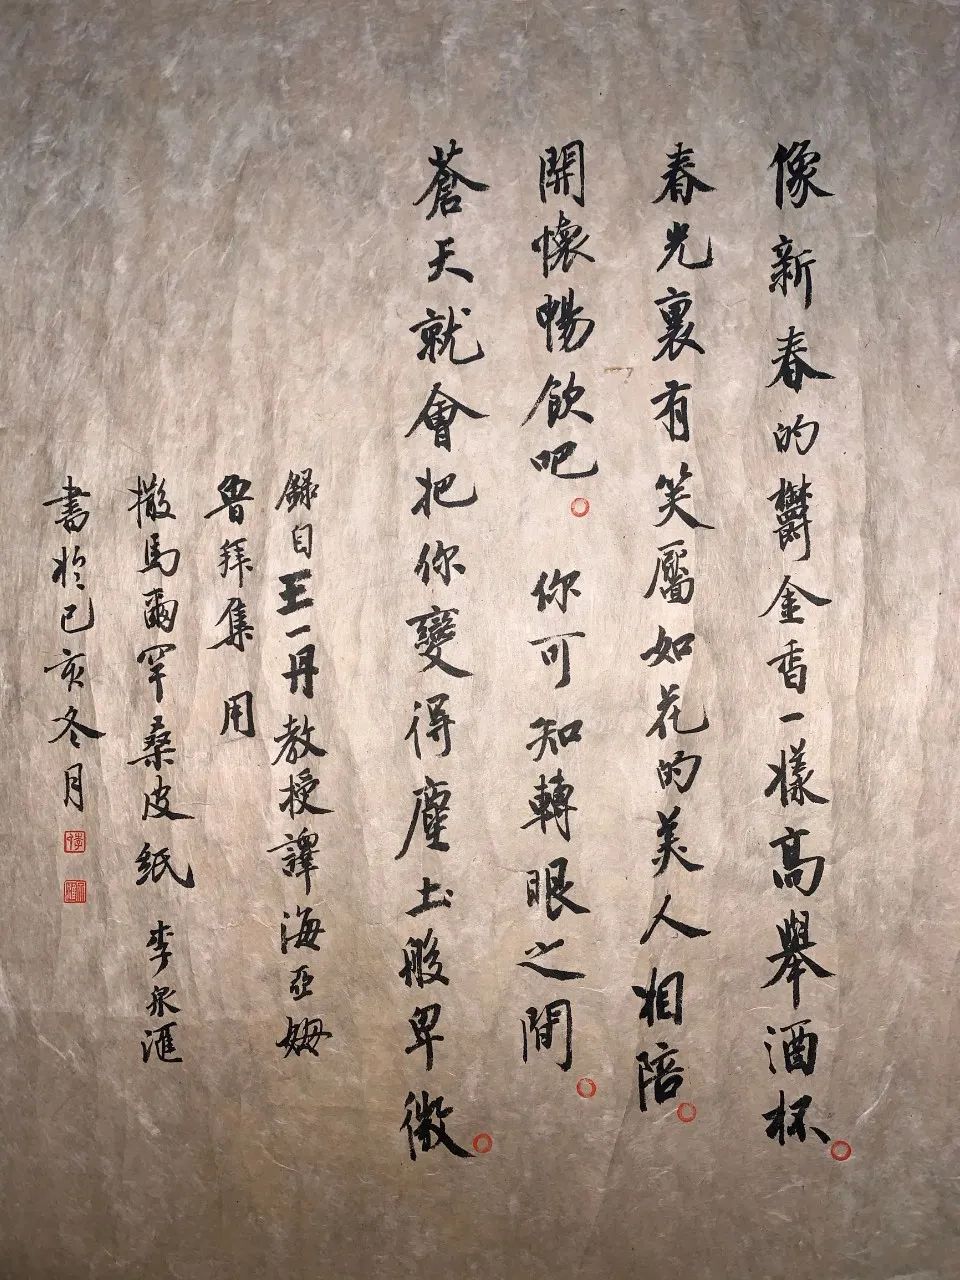 像新春的鬱金香一樣高舉酒杯
春光裏有笑靨如花的美人相陪
開懷暢飲吧 你可知轉眼之間
蒼天就會把你變得塵土般卑微
錄自王一丹教授譯海亞姆
魯拜集 用
撒馬爾罕桑皮紙 李泉滙
書於己亥冬月